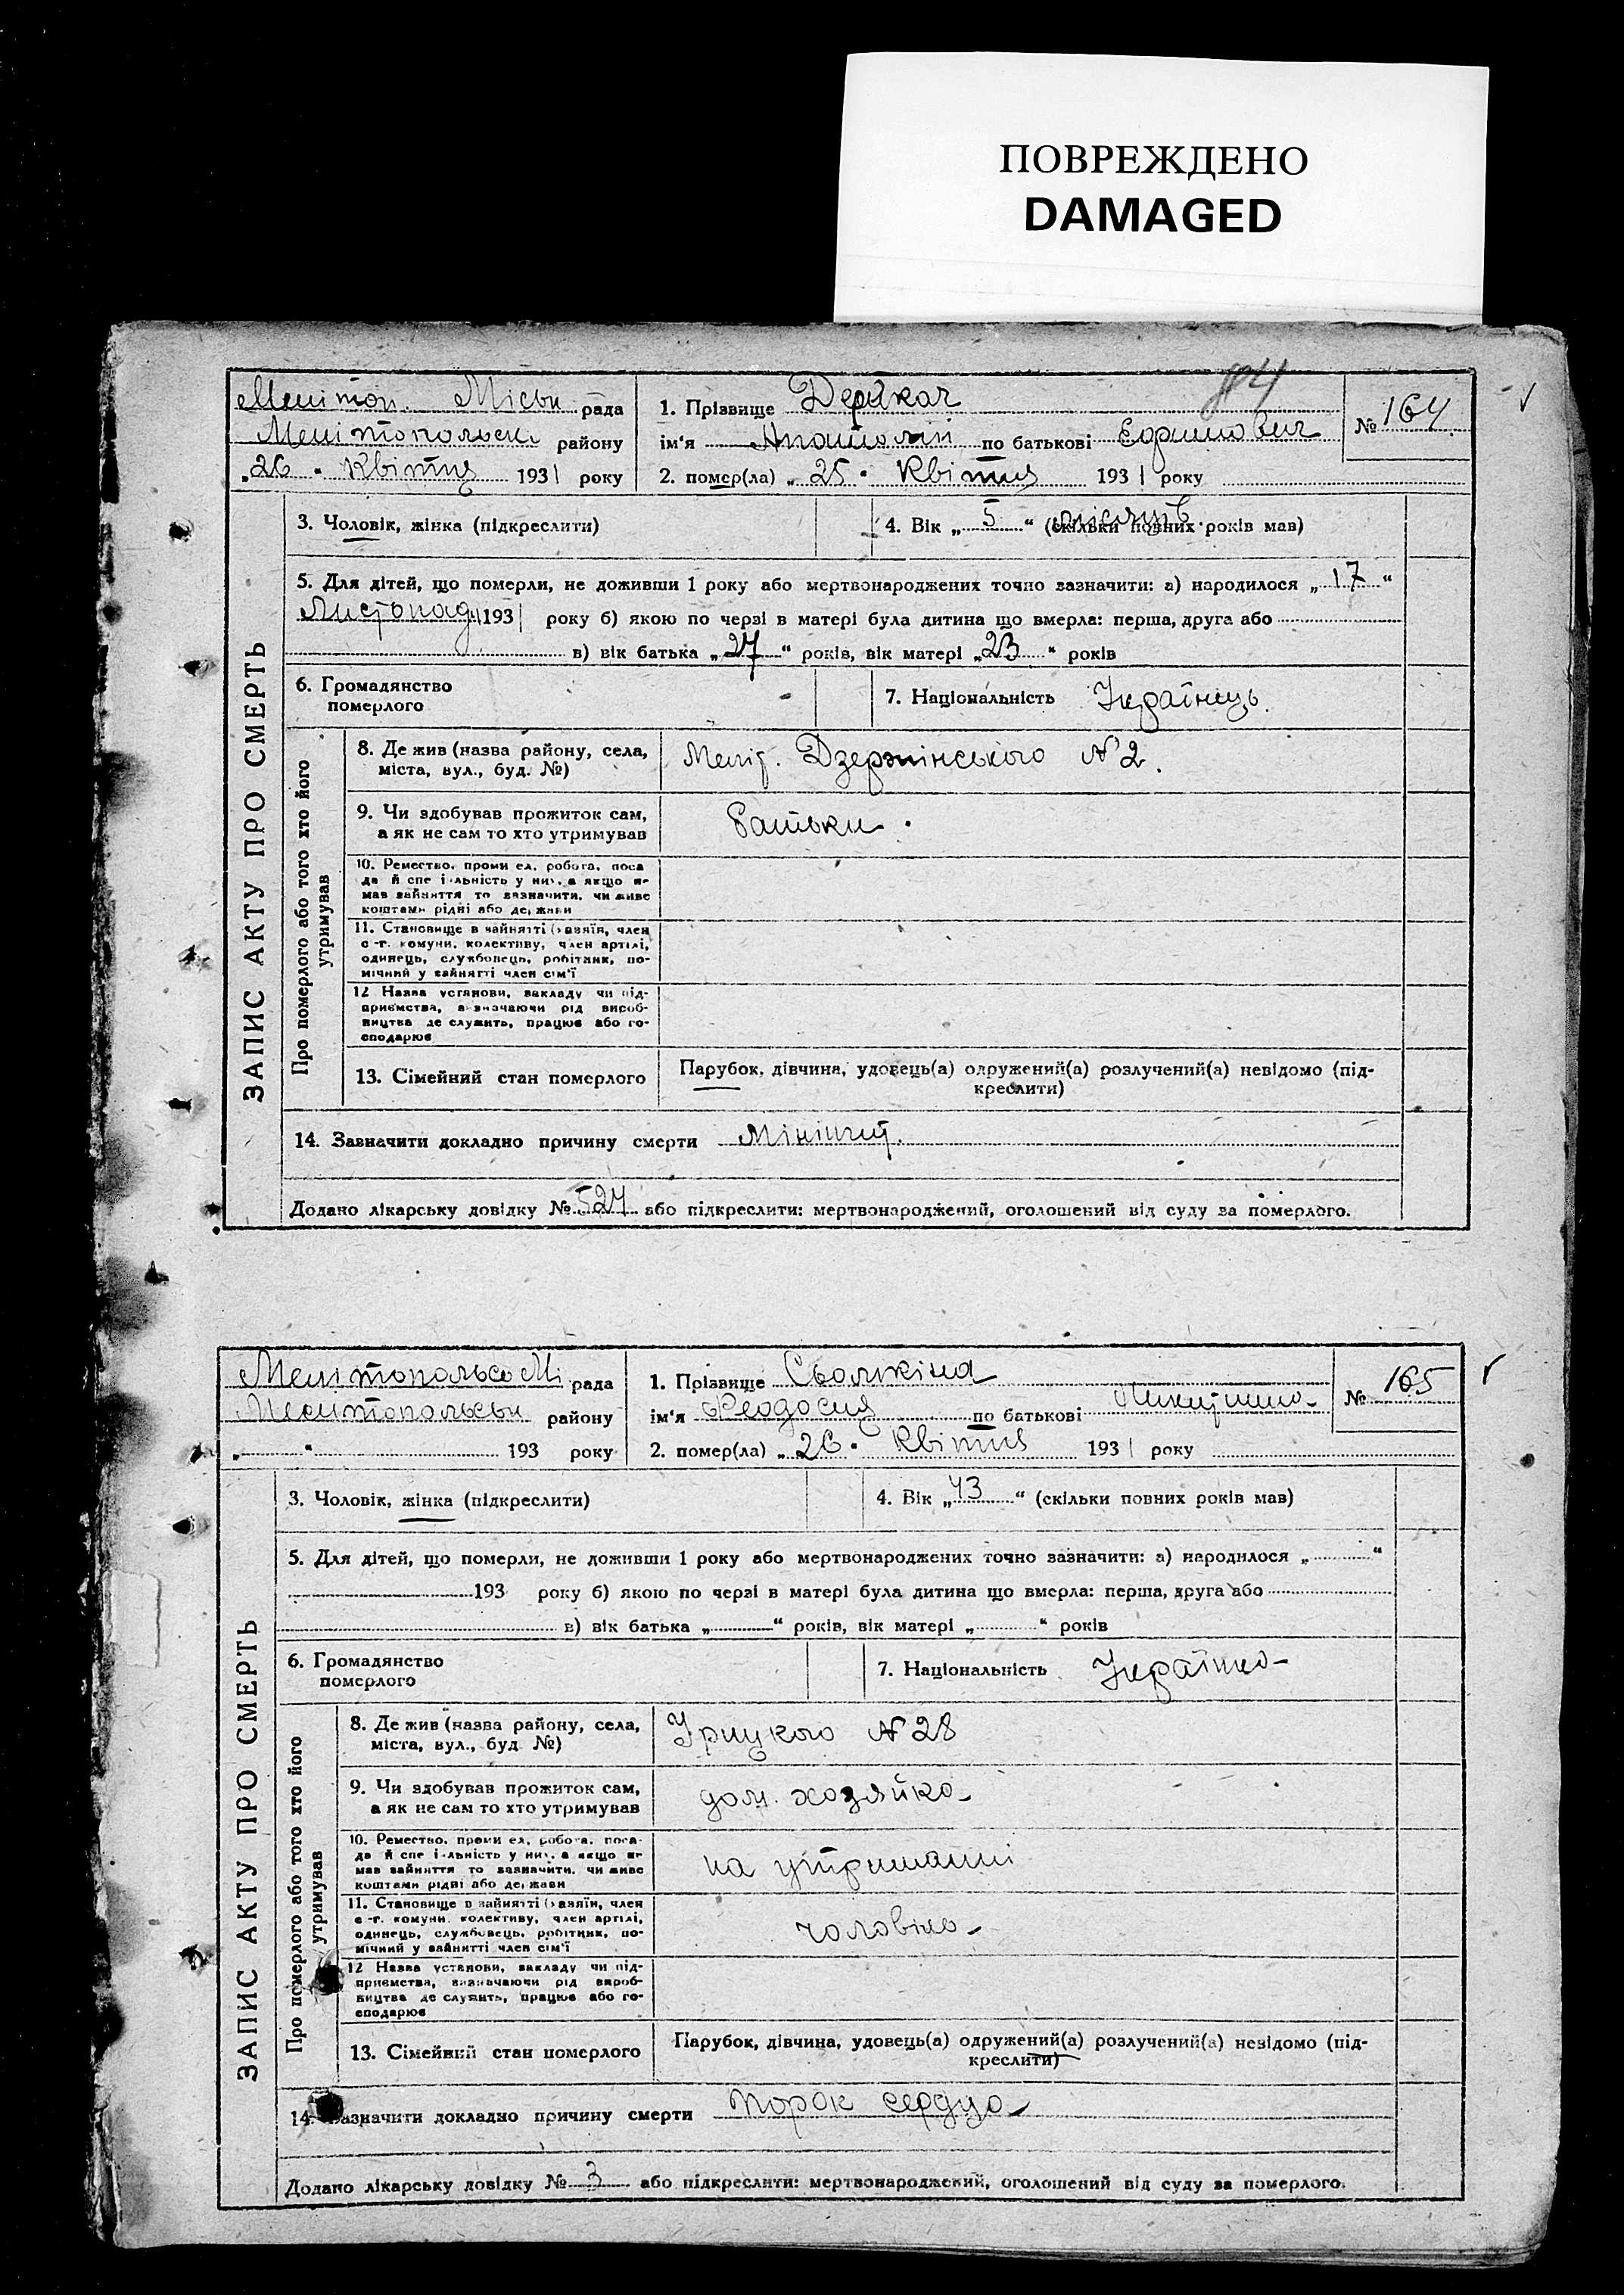 ПОВРЕЖДЕНО
DAMAGED
84
Меліт оп. Міськ рада
Мелітопольськ району
„26 “ Квітня 1931 року
1. Прізвище Деркач
ім'я Анатолій по батькові
2. помер(ла) „ 25 “ Квітня 1931 року
№ 164
ЗАПИС АКТУ ПРО СМЕРТЬ
3. Чоловік, жінка (підкреслити)
4. Вік „ 5 “ місяців (скільки повних років мав)
5. Для дітей, що померли, не доживши 1 року або мертвонароджених точно зазначити: а) народилося „ 17 “
Листопад 1931 року б) якою по черзі в матері була дитина що вмерла: перша, друга або
в) вік батька „ 27 “ років, вік матері „ 23 “ років
6. Громадянство
померлого
7. Національність Українець.
Про померлого або того хто його
утримував
8. Де жив (назва району, села,
міста, вул., буд. №)
Меліт. Дзержінського № 2.
9. Чи здобував прожиток сам,
а як не сам то хто утримував
Батьки.
10. Ремество, проми ел, робота, поса
да й спе і льність у них, а якщо не
мав зайняття то зазначити, чи живе
коштами рідні або держави
11. Становище в зайнятті (хазяїн, член
с-г. комуни, колективу, член артілі,
одинець, службовець, робітник, по-
мічний у зайнятті член сім'ї
12 Назва установи, закладу чи під-
приємства, зазначаючи рід вироб-
ництва де служить, працює або го-
сподарює
13. Сімейний стан померлого
Парубок, дівчина, удовець(а) одружений(а) розлучений(а) невідомо (під-
креслити)
14. Зазначити докладно причину смерти Мінінгит.
Додано лікарську довідку № 527 або підкреслити: мертвонароджений, оголошений від суду за померлого.
Мелітопольсь Мі рада
Мелитопольськ району
„ “ 193 року
1. Прізвище
ім'я Феодосия по батькові
2. помер(ла) „ 26 “ Квітня 1931 року
№ 165
ЗАПИС АКТУ ПРО СМЕРТЬ
3. Чоловік, жінка (підкреслити)
4. Вік „ 43 “ (скільки повних років мав)
5. Для дітей, що померли, не доживши 1 року або мертвонароджених точно зазначити: а) народилося „ “
193 року б) якою по черзі в матері була дитина що вмерла: перша, друга або
в) вік батька „ “ років, вік матері „ “ років
6. Громадянство
померлого
7. Національність Українка
Про померлого або того хто його
утримував
8. Де жив (назва району, села,
міста, вул., буд №)
Урицкого № 28
9. Чи здобував прожиток сам,
а як не сам то хто утримував
дом. хозяйка
10. Ремество, проми ел, робота, поса-
да й спе і льність у них, а якщо не
мав зайняття то зазначити, чи живе
коштами рідні або держави
на утриманні
11. Становище в зайнятті (хазяїн, член
с-г. комуни, колективу, член артілі,
одинець, службовець, робітник, по-
мічний у зайнятті член сім'ї
чоловіка
12 Назва установи, закладу чи під-
приємства, зазначаючи рід вироб-
ництва де служить, працює або го-
сподарює
13. Сімейний стан померлого
Парубок, дівчина, удовець(а) одружений(а) розлучений(а) невідомо (під-
креслити)
14. Зазначити докладно причину смерти Порок сердца
Додано лікарську довідку № 3 або підкреслити: мертвонароджений, оголошений від суду за померлого.